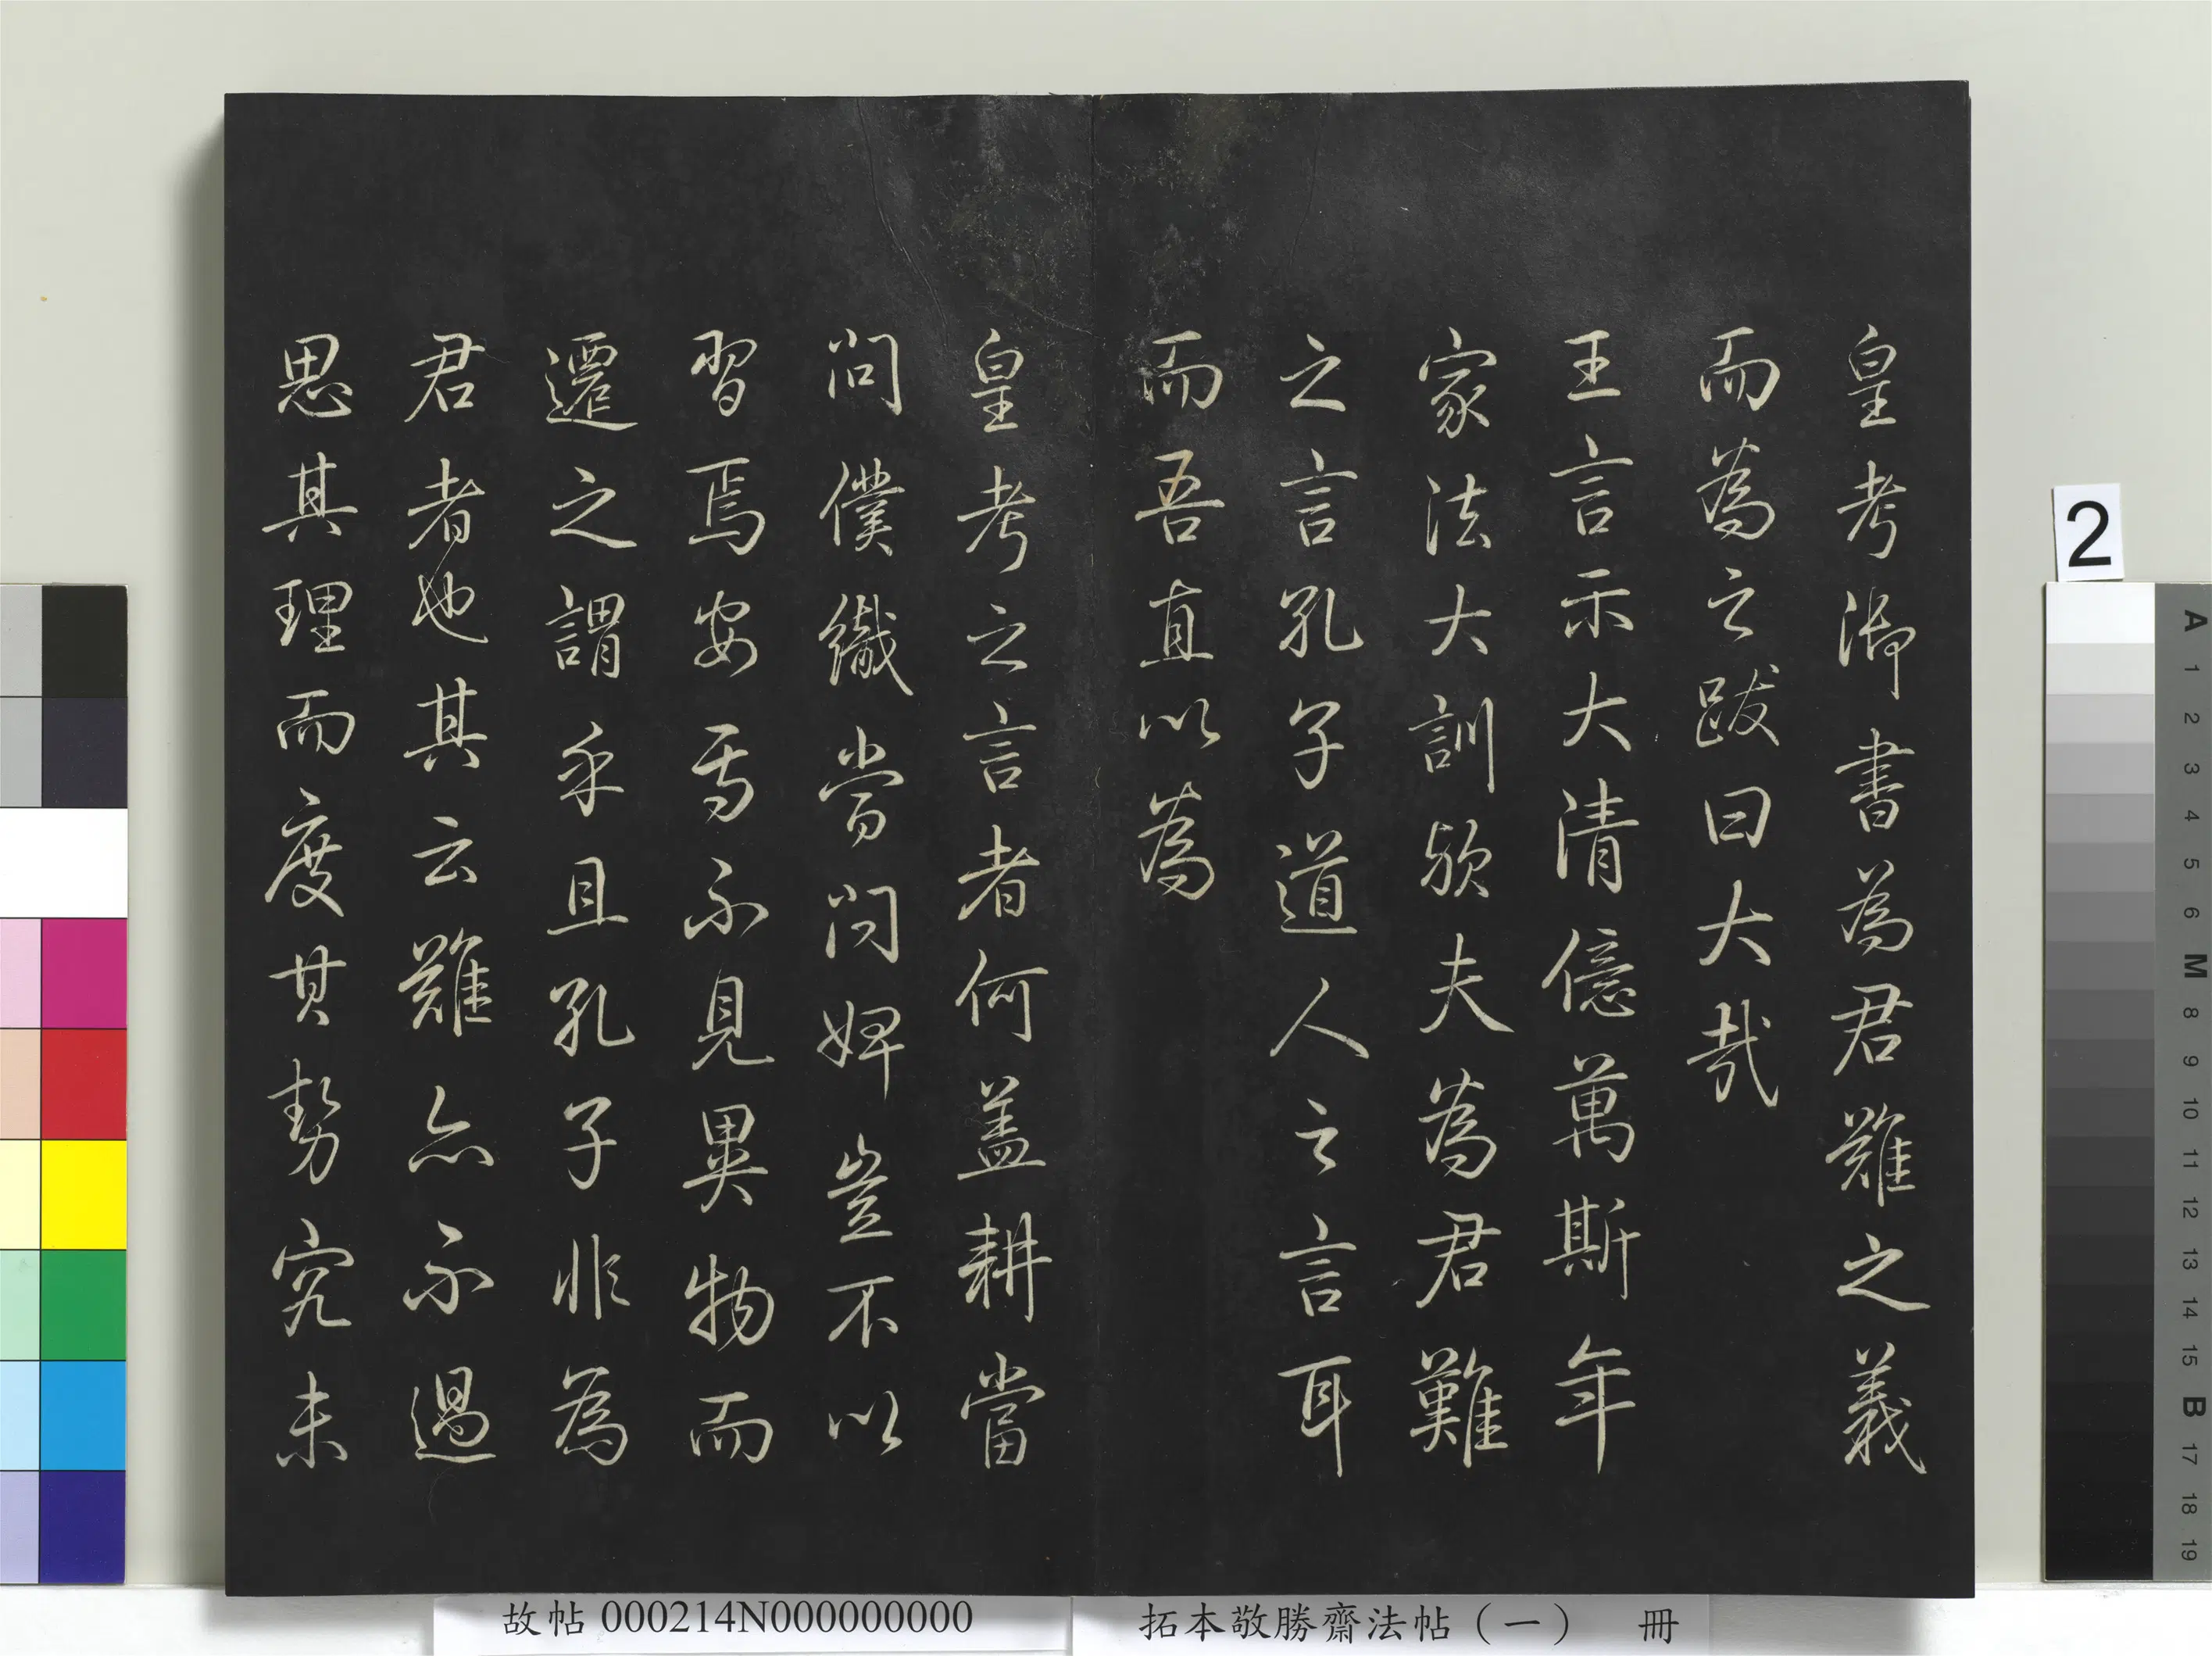 皇考御書為君難之義
而為之跋曰大哉
王言示大清億萬斯年
家法大訓欤夫為君難
之言孔子道人之言耳
而吾直以為
皇考之言者何盖耕當
問僕織當問婢豈不以
習焉安焉不見異物而
遷之謂乎且孔子非為
君者也其云難亦不過
思其理而度其勢究未
故帖 000214N000000000
拓本敬勝齋法帖（一） 冊
2
A 1 2 3 4 5 6 M 8 9 10 11 12 13 14 15 B 17 18 19